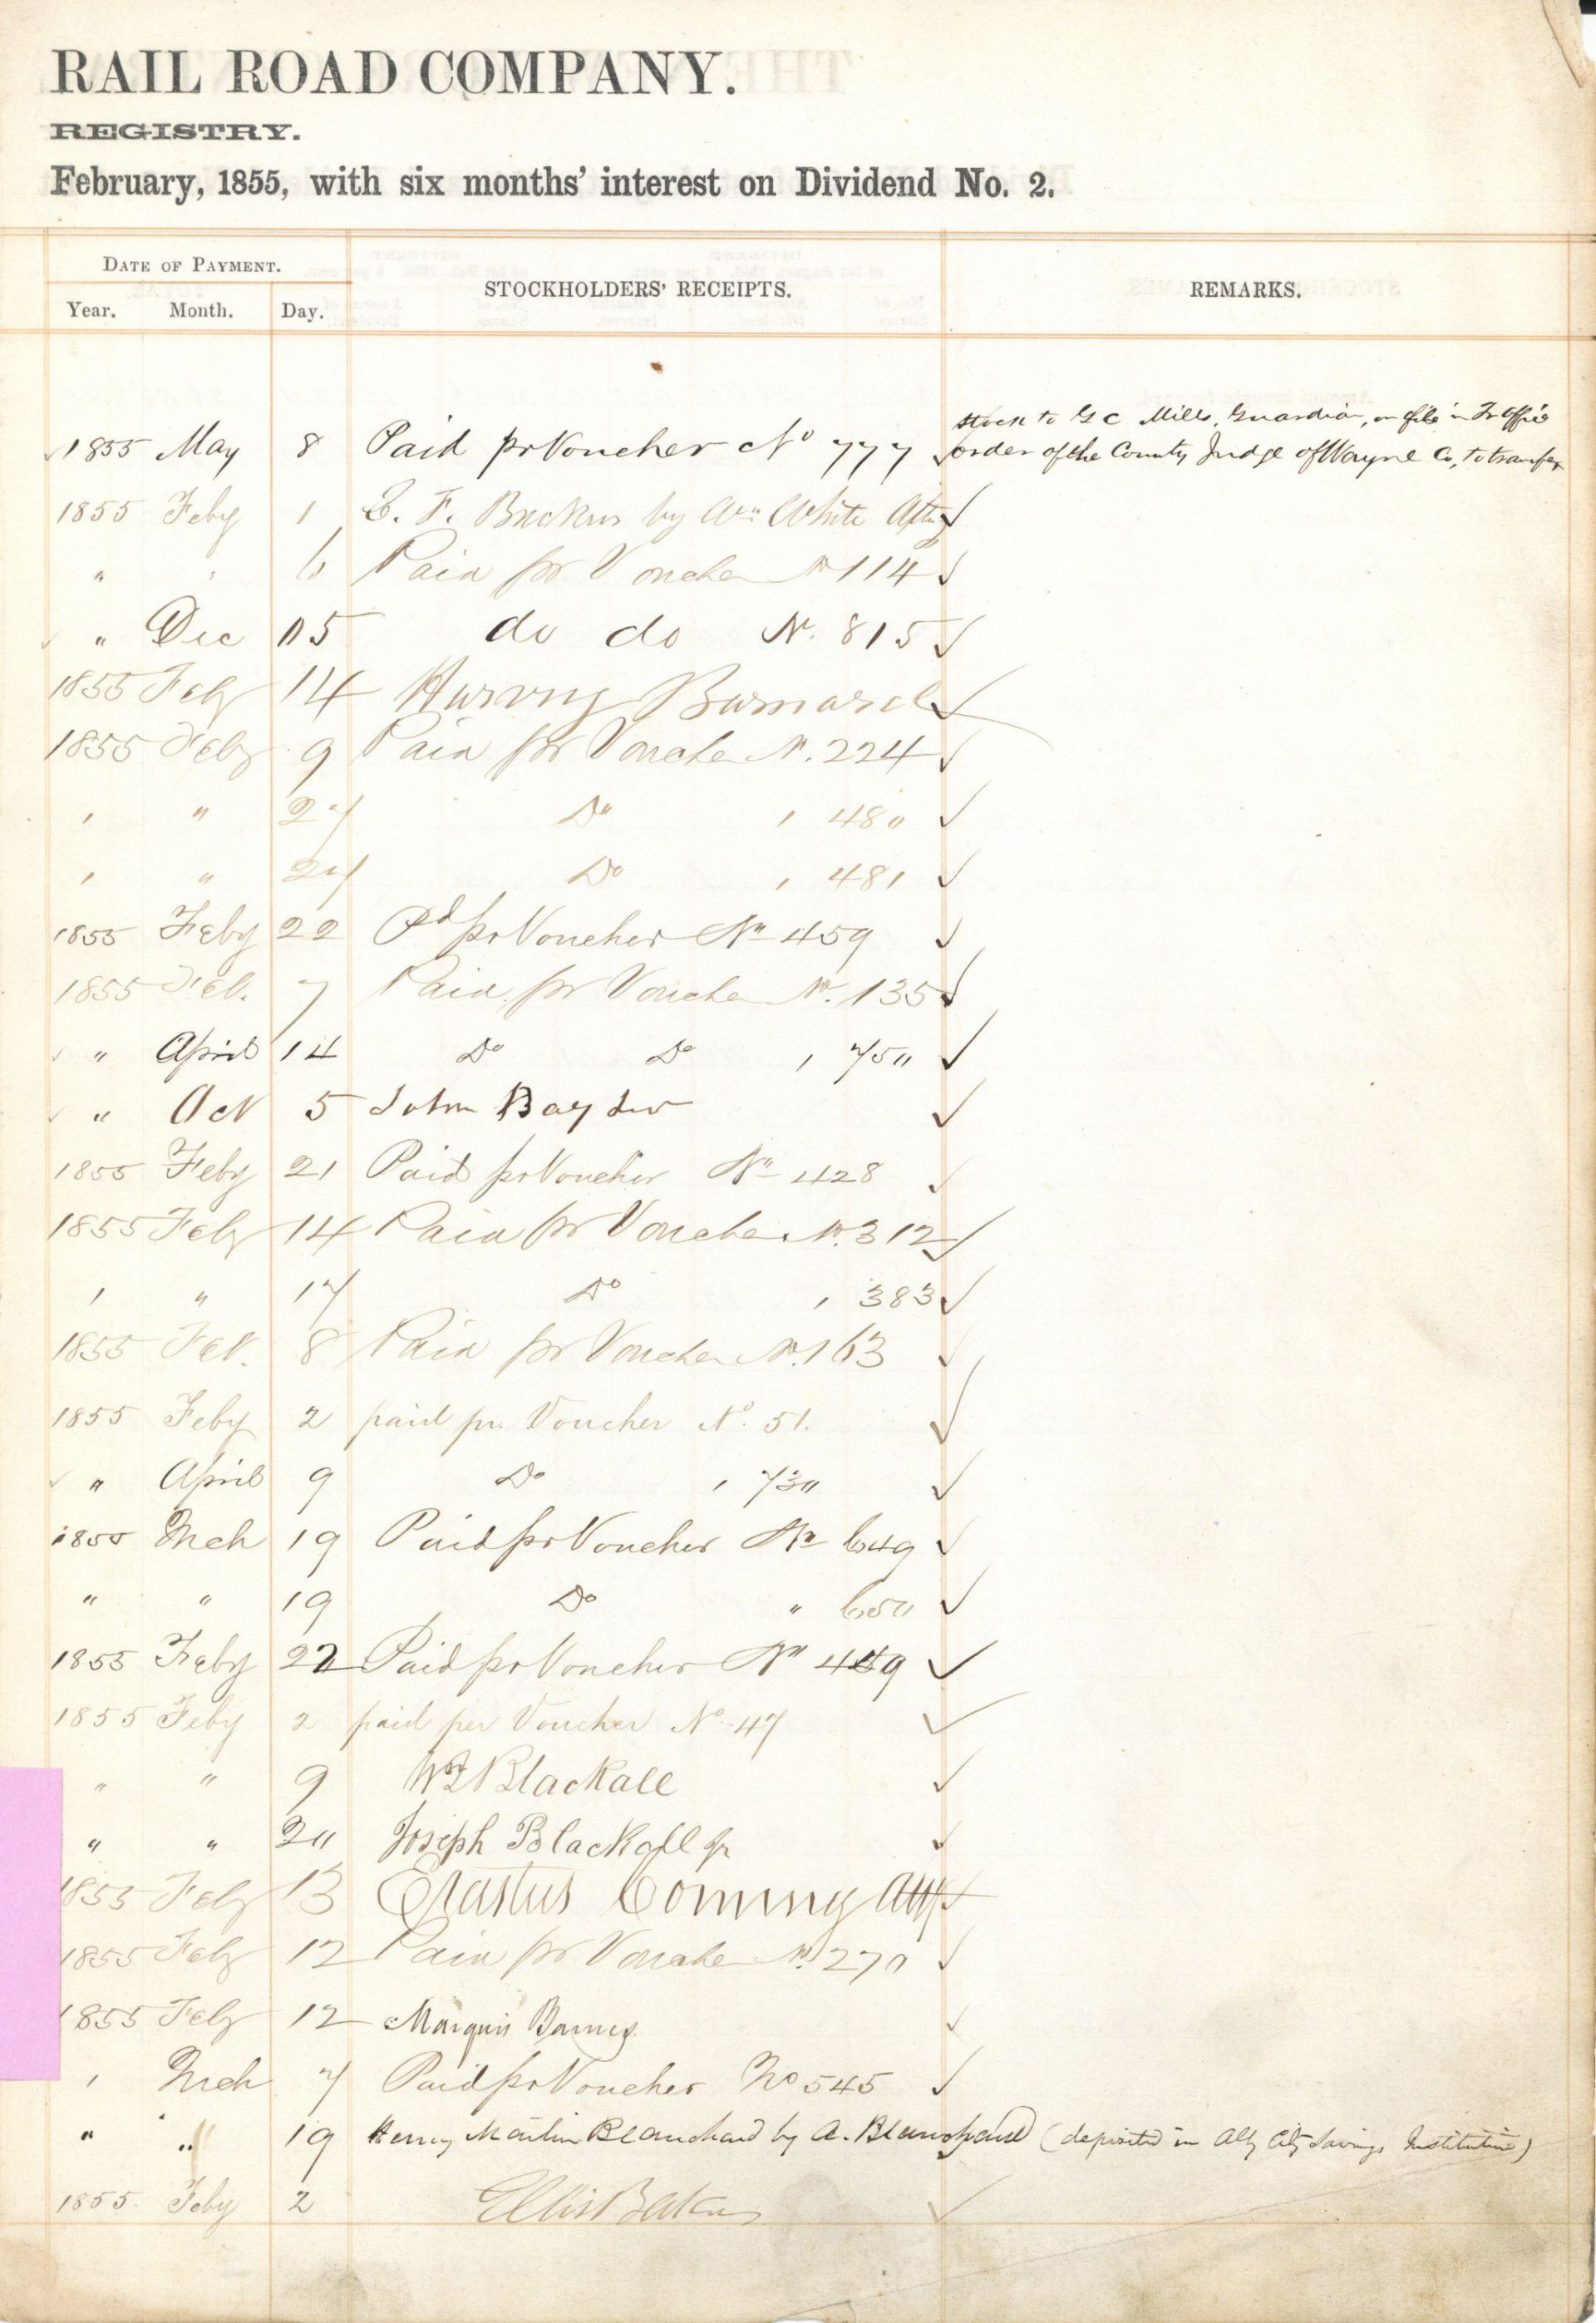 RAIL ROAD COMPANY.
REGISTRY.
February, 1855, with six months' interest on Dividend No. 2.
DATE OF PAYMENT. STOCKHOLDERS' RECEIPTS. REMARKS.
Year. Month. Day.
stock to G C Mills, Guardian, on file in Tr office
1855 May 8 Paid pr Voucher No 777 order of the County Judge of Wayne Co, to transfer
1855 Feby 1 E. F. Backus by Wm White Atty
" " 6 Paid pr Voucher No 114
" Dec 15 do do No. 815
1855 Feby 14 Harvey Barnard
1855 Feby 9 Paid pr Voucher No. 224
" " 27 Do " 480
" " 27 Do " 481
1855 Feby 22 Pd pr Voucher No 459
1855 Feb. 7 Paid pr Voucher No. 135
" April 14 Do Do " 750
" Oct 5 John
1855 Feby 21 Paid pr Voucher No 428
1855 Feby 14 Paid pr Voucher No. 312
" " 17 Do " 383
1855 Feb. 8 Paid pr Voucher No. 163
1855 Feby 2 paid pr. Voucher No. 51.
" April 9 Do " 730
1855 Mch 19 Paid pr Voucher No 649
" " 19 Do " 650
1855 Feby 22 Paid pr Voucher No
1855 Feby 2 paid per Voucher No. 47
" " 9 Blackall
" " 20 Joseph Blackall Jr
1855 Feby 13 Erastus Corning Atty
1855 Feby 12 Paid pr Voucher No. 270
1855 Feby 12 Marquis Barnes
" Mch 7 Paid pr Voucher No 545
" " 19 Henry Martin Blanchard by A. Blanchard (deposited in Alby City Savings Institution)
1855 Feby 2 Ellis Baker